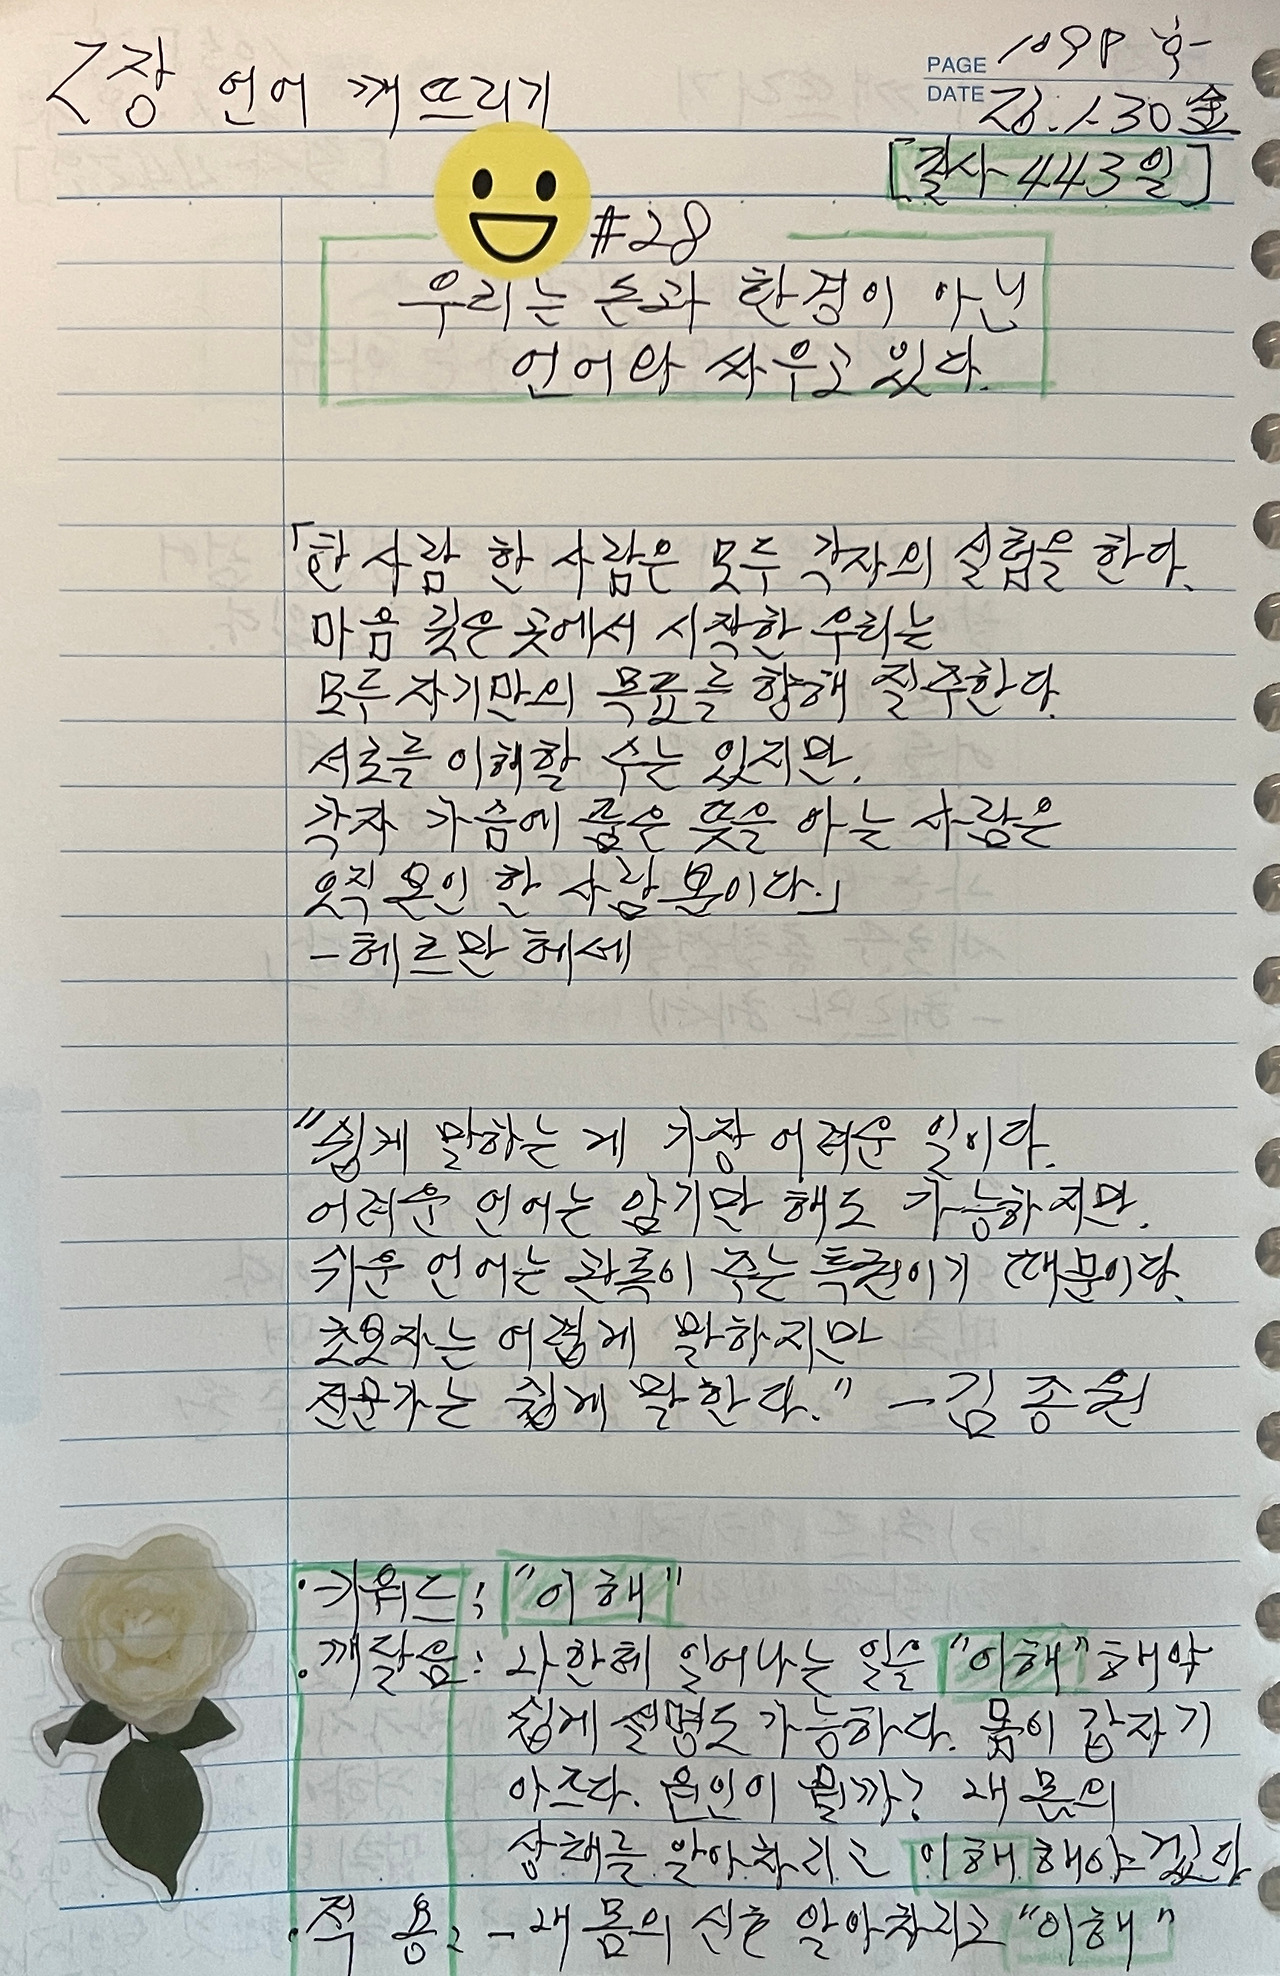 2장 언어 깨뜨리기
PAGE 109P
DATE 26.1.30 金
[필사 443일]
#28
우리는 돈과 환경이 아닌
언어와 싸우고 있다.
「한 사람 한 사람은 모두 각자의 실험을 한다.
마음 깊은 곳에서 시작한 우리는
모두 자기만의 목표를 향해 질주한다.
서로를 이해할 수는 있지만,
각자 가슴에 품은 뜻을 아는 사람은
오직 본인 한 사람 뿐이다.」
-헤르만 헤세
"쉽게 말하는 게 가장 어려운 일이다.
어려운 언어는 암기만 해도 가능하지만,
쉬운 언어는 관록이 주는 특권이기 때문이다.
초보자는 어렵게 말하지만
전문가는 쉽게 말한다." -김종원
·키워드: "이해"
·깨달음: 나한테 일어나는 일을 "이해"해야
쉽게 설명도 가능하다. 몸이 갑자기
아프다. 원인이 뭘까? 내 몸의
상태를 알아차리고 이해해야겠다
·적용: -내 몸의 신호 알아차리고 "이해"